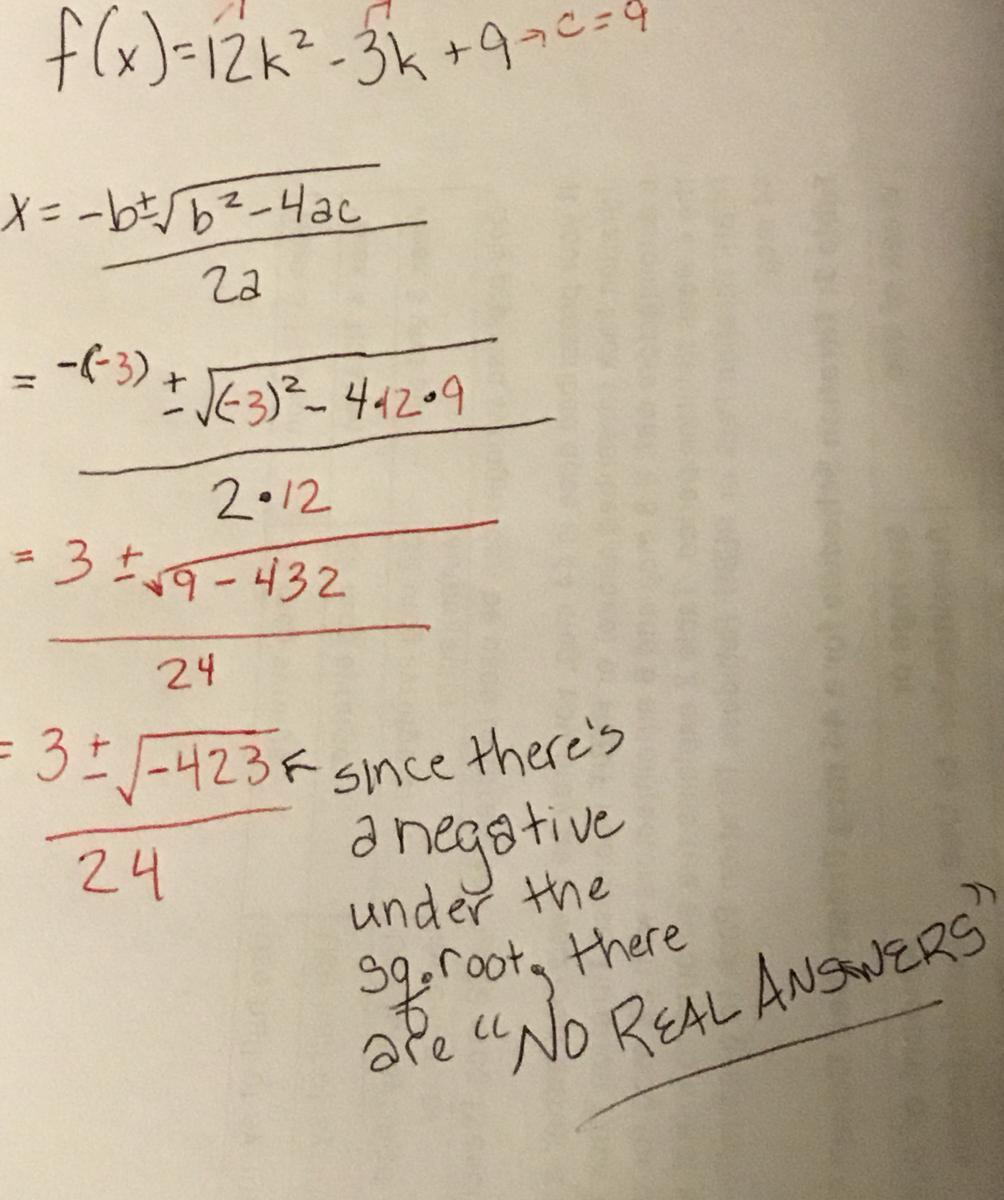 f(x)=12k²-3k+9→c=9
x = -b±√b²-4ac
2a
= -(-3) ± √(-3)²- 4•12•9
2•12
= 3 ± √9-432
24
= 3 ± √-423 ← since there's
24
a negative
under the
sq. root, there
are "NO REAL ANSWERS"